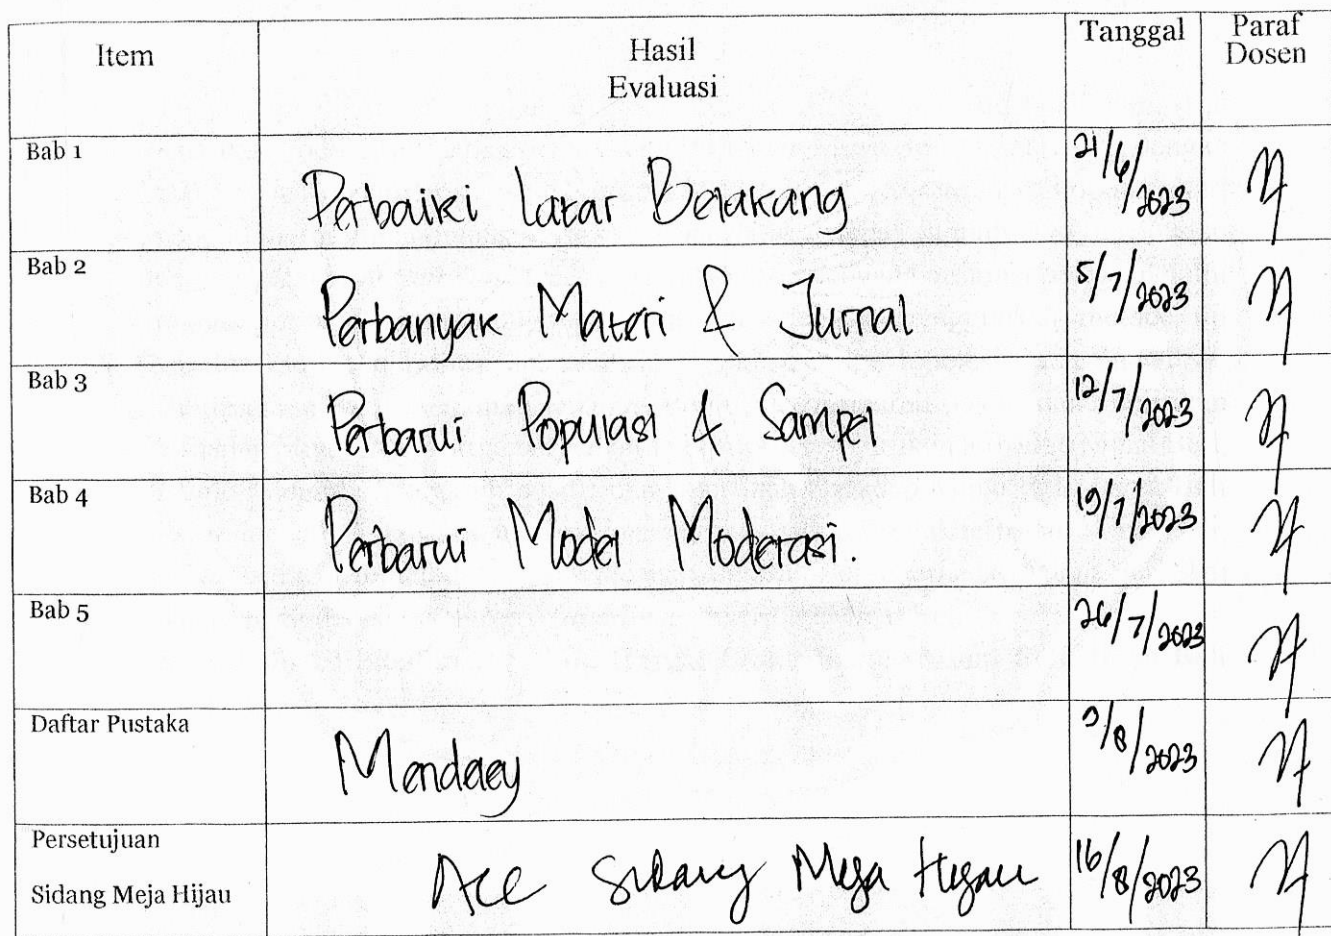 Item Hasil Evaluasi Tanggal Paraf Dosen
Bab 1 Perbaiki Latar Belakang 21/6/2023
Bab 2 Perbanyak Materi & Jurnal 5/7/2023
Bab 3 Perbarui Populasi & Sampel 12/7/2023
Bab 4 Perbarui Model Moderasi. 19/7/2023
Bab 5 26/7/2023
Daftar Pustaka Mendeley 9/8/2023
Persetujuan
Sidang Meja Hijau Acc Sidang Meja Hijau 16/8/2023